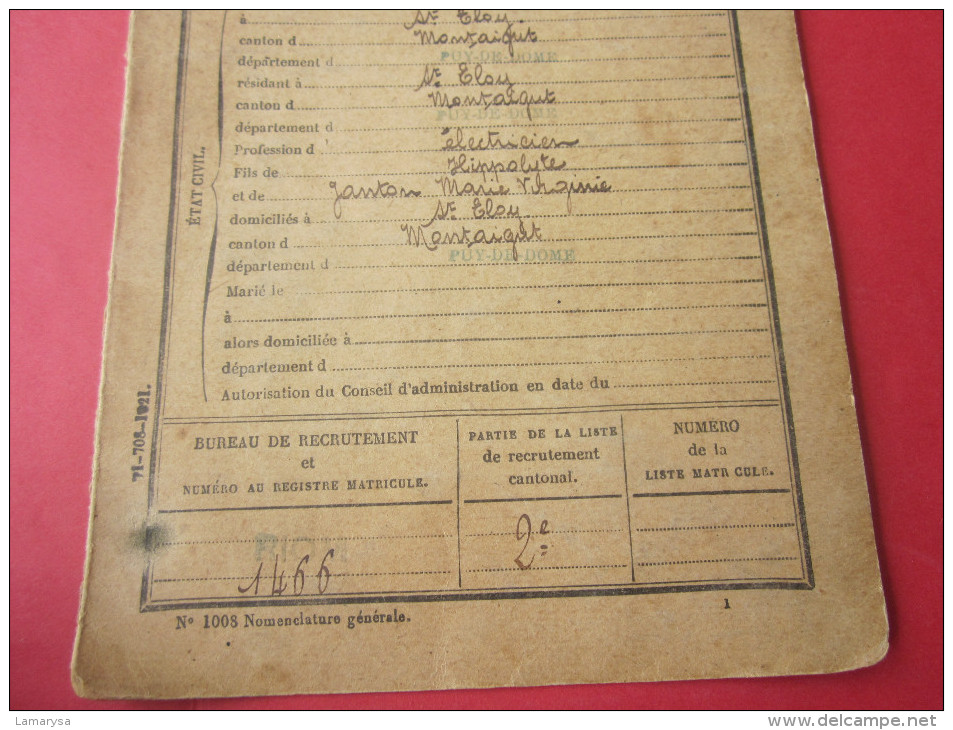 à St Eloy.
canton d Montaigut
département d PUY-DE-DOME
résidant à St Eloy
canton d Montaigut
département d PUY-DE-DOME
Profession d électricien
Fils de Hippolyte
et de Janton Marie Virginie
domiciliés à St Eloy.
canton d Montaigut
département d PUY-DE-DOME
Marié le
à
alors domiciliée à
département d
Autorisation du Conseil d'administration en date du
ÉTAT CIVIL.
71-708-1921.
BUREAU DE RECRUTEMENT
et
NUMÉRO AU REGISTRE MATRICULE.
PARTIE DE LA LISTE
de recrutement
cantonal.
NUMÉRO
de la
LISTE MATR CULE.
1466
2e
No 1008 Nomenclature générale.
1
Lamarysa
www.delcampe.net